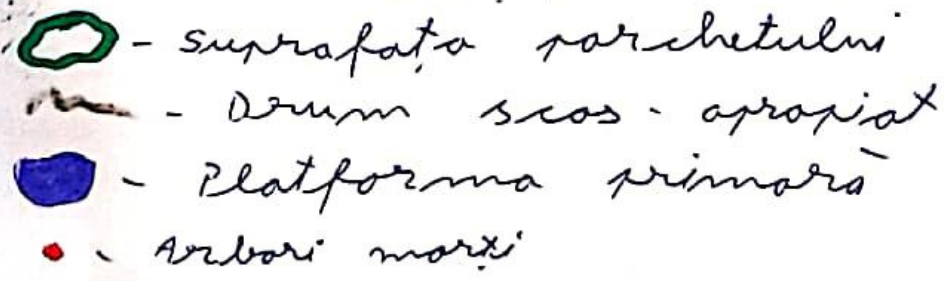 - Suprafața parchetului
- Drum scos - apropiat
- Platforma primară
- Arbori morți